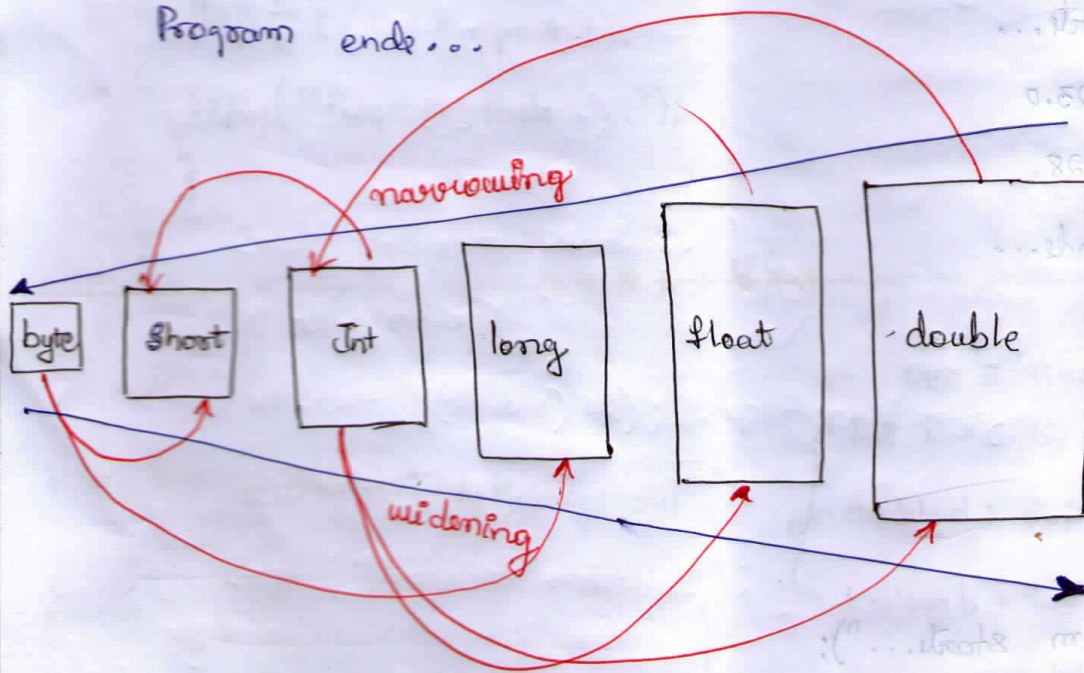 Program ends...
narrowing
byte Short Int long float double
widening